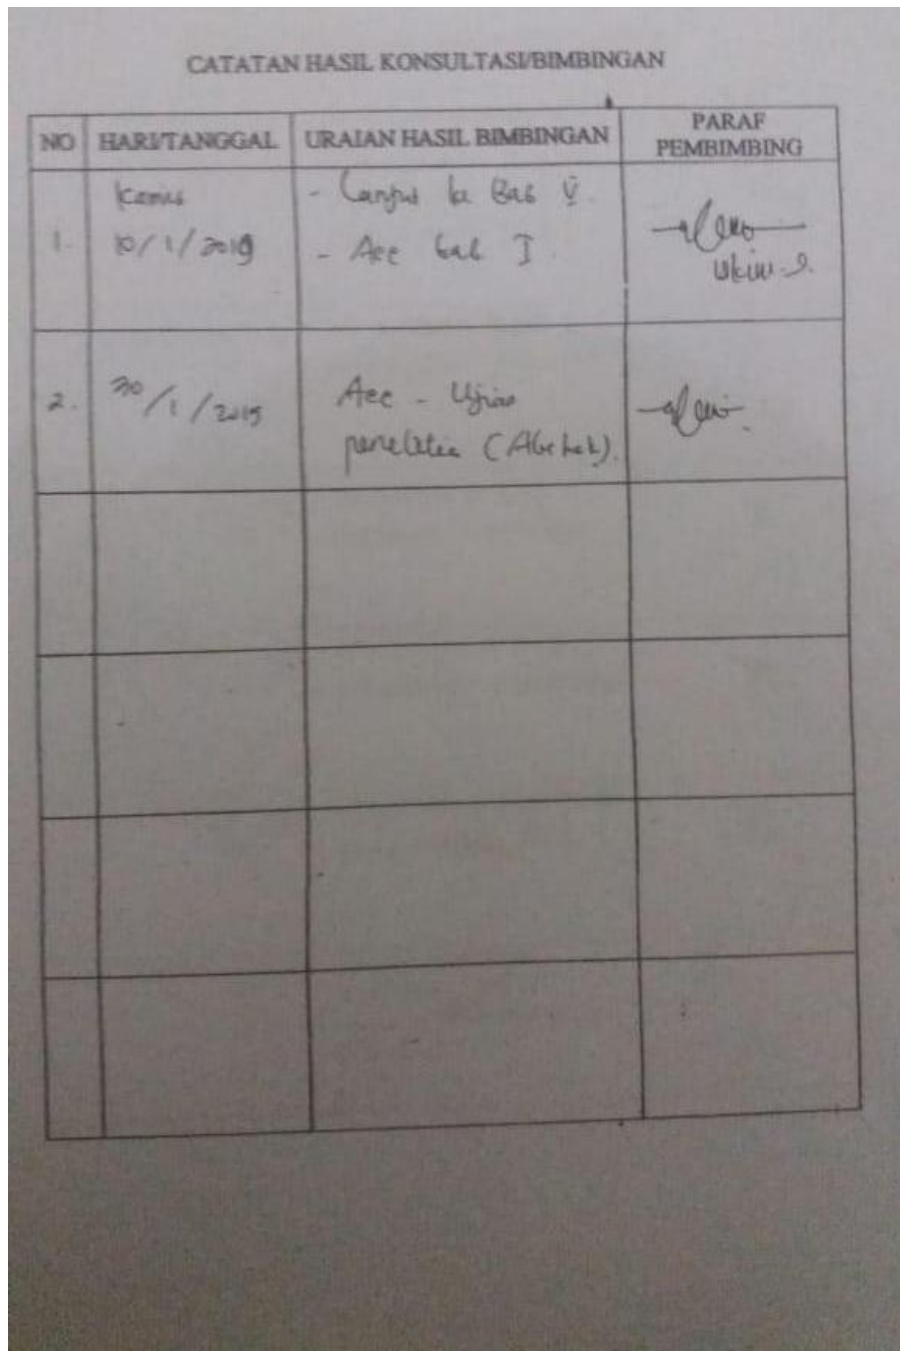 CATATAN HASIL KONSULTASI/BIMBINGAN
NO HARI/TANGGAL URAIAN HASIL BIMBINGAN PARAF PEMBIMBING
1. Kamis
10/1/2019
- Lanjut ke Bab V.
- Acc bab I.
2. 30/1/2019
Acc - Ujian
penelitian (Abstrak).